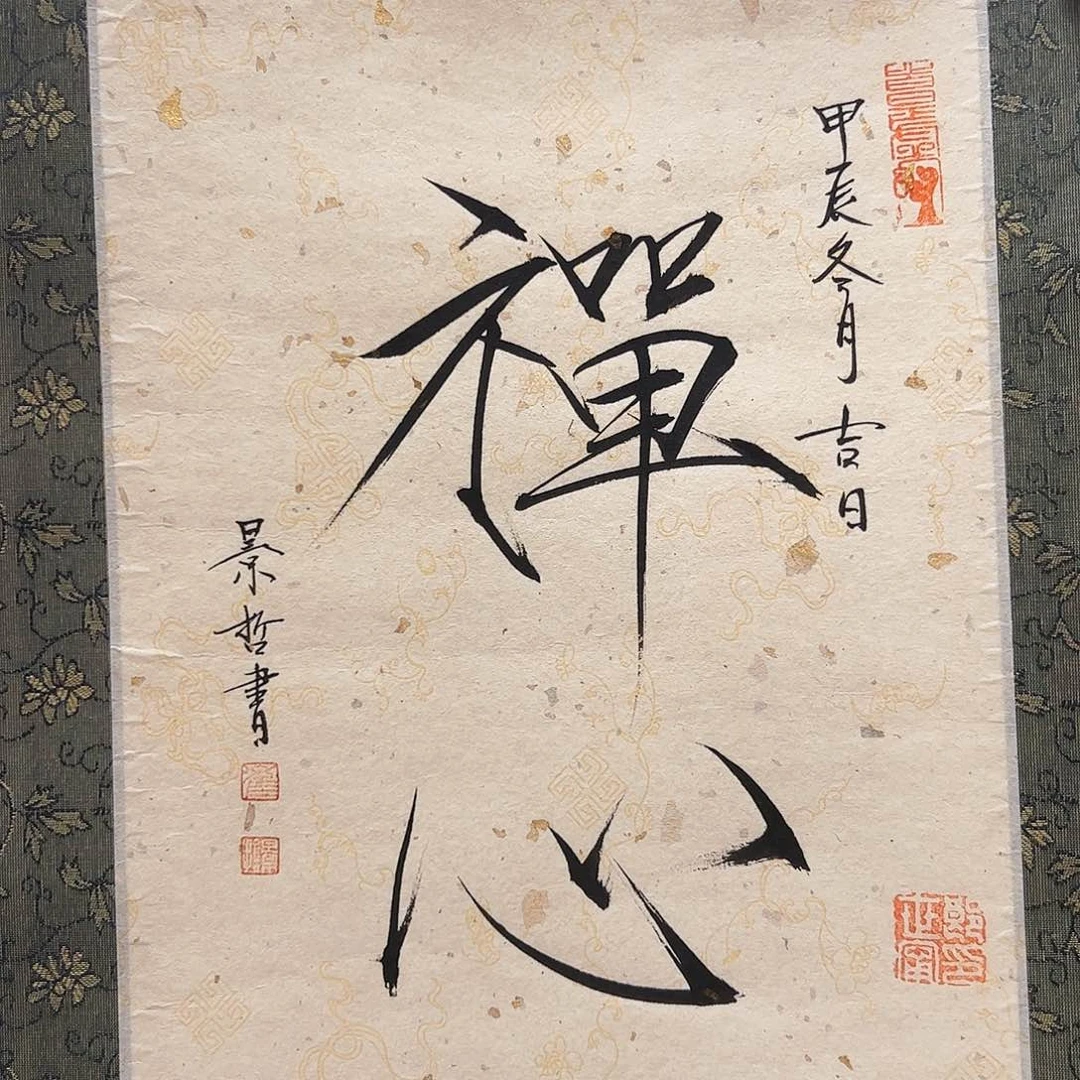 甲辰冬月 吉日
禪心
景哲書